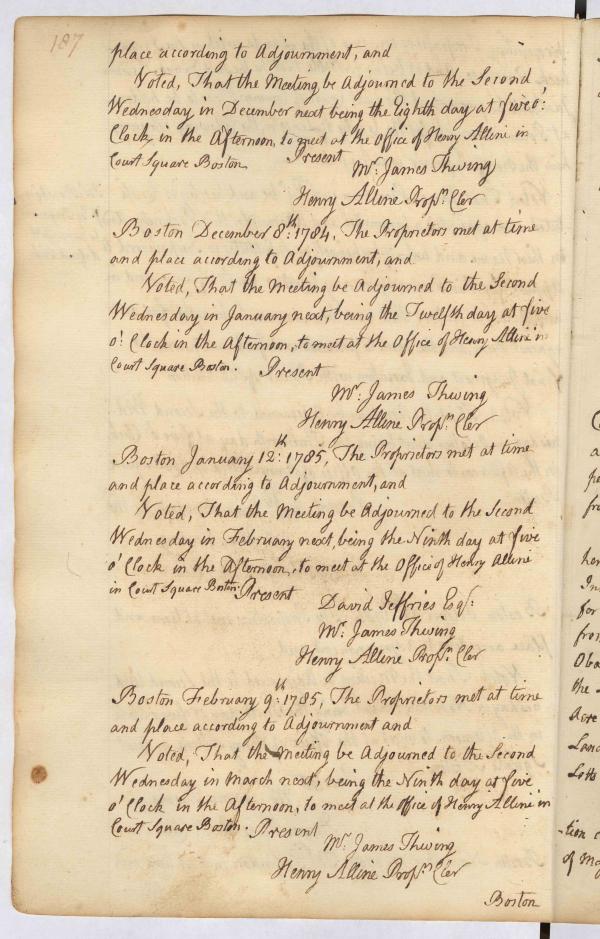 187
place according to Adjournment, and
Noted, That the Meeting be Adjourned to the Second
Wednesday in December next being the Eighth day at five o:
Clock in the Afternoon, to meet at the Office of Henry Alline in
Court Square Boston. Present
Mr. James Thwing
Henry Alline Propn. Cler
Boston December 8th: 1784, The Proprietors met at time
and place according to Adjournment, and
Noted, That the Meeting be Adjourned to the Second
Wednesday in January next, being the Twelfth day at five
o: Clock in the Afternoon, to meet at the Office of Henry Alline in
Court Square Boston. Present
Mr. James Thwing
Henry Alline Propn. Cler
Boston January 12th: 1785, The Proprietors met at time
and place according to Adjournment, and
Noted, That the Meeting be Adjourned to the Second
Wednesday in February next, being the Ninth day at five
o' Clock in the Afternoon, to meet at the Office of Henry Alline
in Court Square Boston. Present
David Jeffries Esqr:
Mr. James Thwing
Henry Alline Propn. Cler
Boston February 9th: 1785, The Proprietors met at time
and place according to Adjournment and
Noted, That the Meeting be Adjourned to the Second
Wednesday in March next, being the Ninth day at five
o' Clock in the Afternoon, to meet at the Office of Henry Alline in
Court Square Boston. Present
Mr. James Thwing
Henry Alline Propn. Cler
Boston
for
from
the
Acre
Land
Lotts
-tion